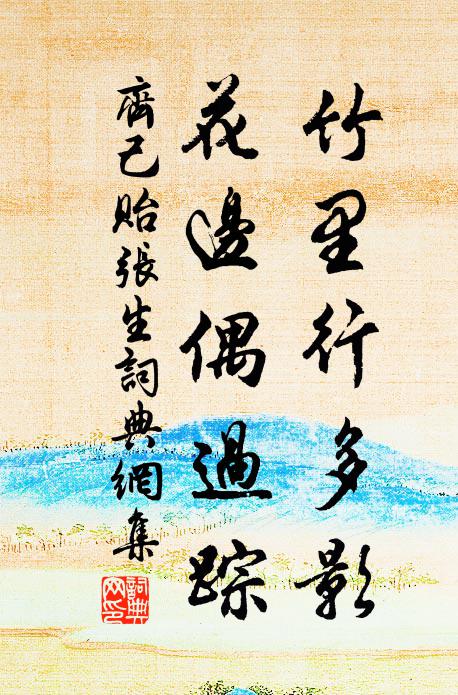 竹里行多影
花邊偶過踪
齊己貽張生詞典網集
詞典網印